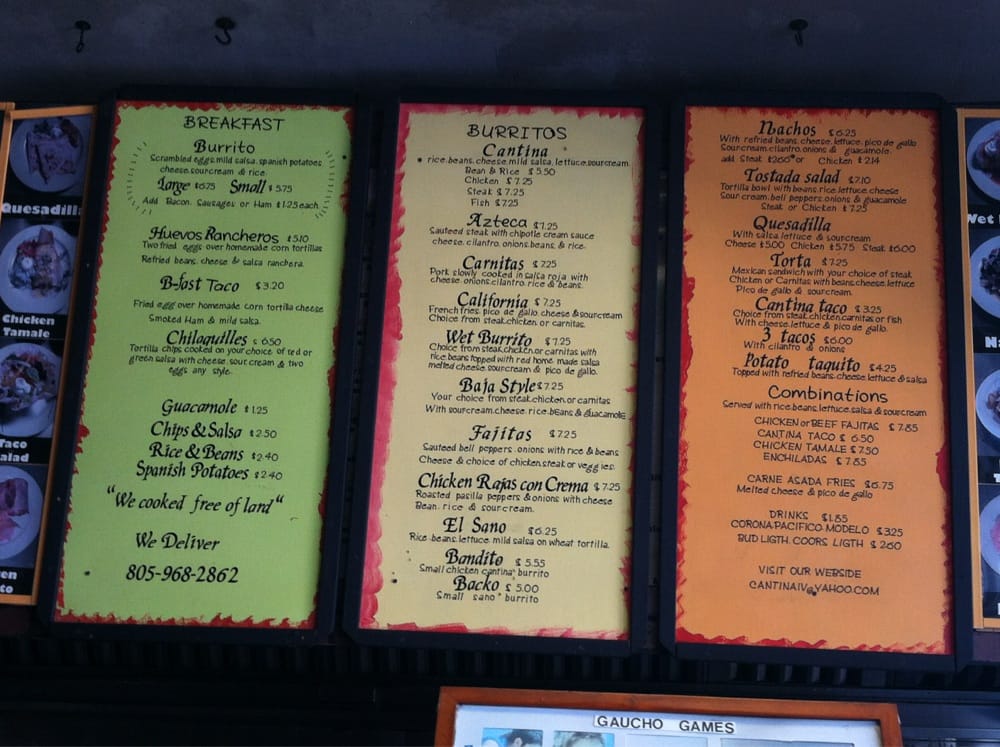 BREAKFAST
Burrito
Scrambled eggs.mild salsa. spanish potatoes
cheese.sourcream & rice.
Large $6.75 Small $5.75
Add Bacon. Sausages or Ham $1.25 each.
Huevos Rancheros $5.10
Two fried eggs over homemade corn tortillas
Refried beans. cheese & salsa ranchera.
B-fast Taco $3.20
Fried egg over homemade corn tortilla cheese
Smoked Ham & mild salsa.
Chilaquilles $ 6.50
Tortilla chips cooked on your choice of red or
green salsa with cheese. sour cream & two
eggs any style.
Guacamole $1.25
Chips & Salsa $2.50
Rice & Beans $2.40
Spanish Potatoes $2.40
"We cooked free of land"
We Deliver
805-968-2862
BURRITOS
Cantina
rice.beans.cheese.mild salsa, lettuce.sourcream
Bean & Rice $5.50
Chicken $7.25
Steak $7.25
Fish $7.25
Azteca $7.25
Sauteed steak with chipotle cream sauce
cheese. cilantro. onions.beans. & rice.
Carnitas $7.25
Pork slowly cooked in salsa roja with
cheese. onions.cilantro. rice & beans.
California $7.25
French fries. pico de gallo. cheese & sourcream
Choice from steak.chicken or carnitas.
Wet Burrito $7.25
Choice from steak.chicken or carnitas with
rice beans topped with red home made salsa
melted cheese.sourcream & pico de gallo.
Baja Style $7.25
Your choice from steak.chicken.or carnitas
With sourcream.cheese. rice. beans & guacamole
Fajitas $7.25
Sauteed bell peppers. onions with rice & beans
Cheese & choice of chicken.steak or veggies.
Chicken Rajas con Crema $7.25
Roasted pasilla peppers & onions with cheese
Bean. rice & sourcream.
El Sano $6.25
Rice.beans.lettuce. mild salsa on wheat tortilla.
Bandito $5.55
Small chicken cantina" burrito
Backo $5.00
Small sano" burrito
Nachos $6.25
With refried beans, cheese. lettuce. pico de gallo
Sourcream.cilantro. onions & guacamole.
add Steak $2.60 or Chicken $2.14
Tostada salad $7.10
Tortilla bowl with beans.rice.lettuce.cheese
Sour cream.bell peppers.onions & guacamole
Steak or Chicken $7.25
Quesadilla
With salsa.lettuce & sourcream
Cheese $5.00 Chicken $5.75 Steak $6.00
Torta $7.25
Mexican sandwich with your choice of steak
Chicken or Carnitas with beans.cheese.lettuce
Pico de gallo & sourcream.
Cantina taco $3.25
Choice from steak.chicken.carnitas or fish
With cheese.lettuce & pico de gallo.
3 tacos $6.00
With cilantro & onions
Potato taquito $4.25
Topped with refried beans.cheese.lettuce & salsa
Combinations
Served with rice.beans.lettuce.salsa & sourcream
CHICKEN or BEEF FAJITAS $7.85
CANTINA TACO $6.50
CHICKEN TAMALE $7.50
ENCHILADAS $7.85
CARNE ASADA FRIES $6.75
Melted cheese & pico de gallo
DRINKS $1.85
CORONA.PACIFICO.MODELO $3.25
BUD LIGTH. COORS. LIGTH $2.60
VISIT OUR WEBSIDE
CANTINAIV@YAHOO.COM
Quesadilla
Chicken
Tamale
Taco
alad
Wet
GAUCHO GAMES